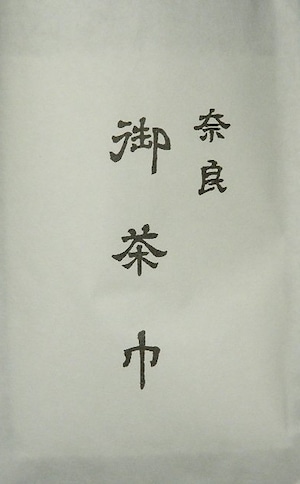 奈良
御茶巾